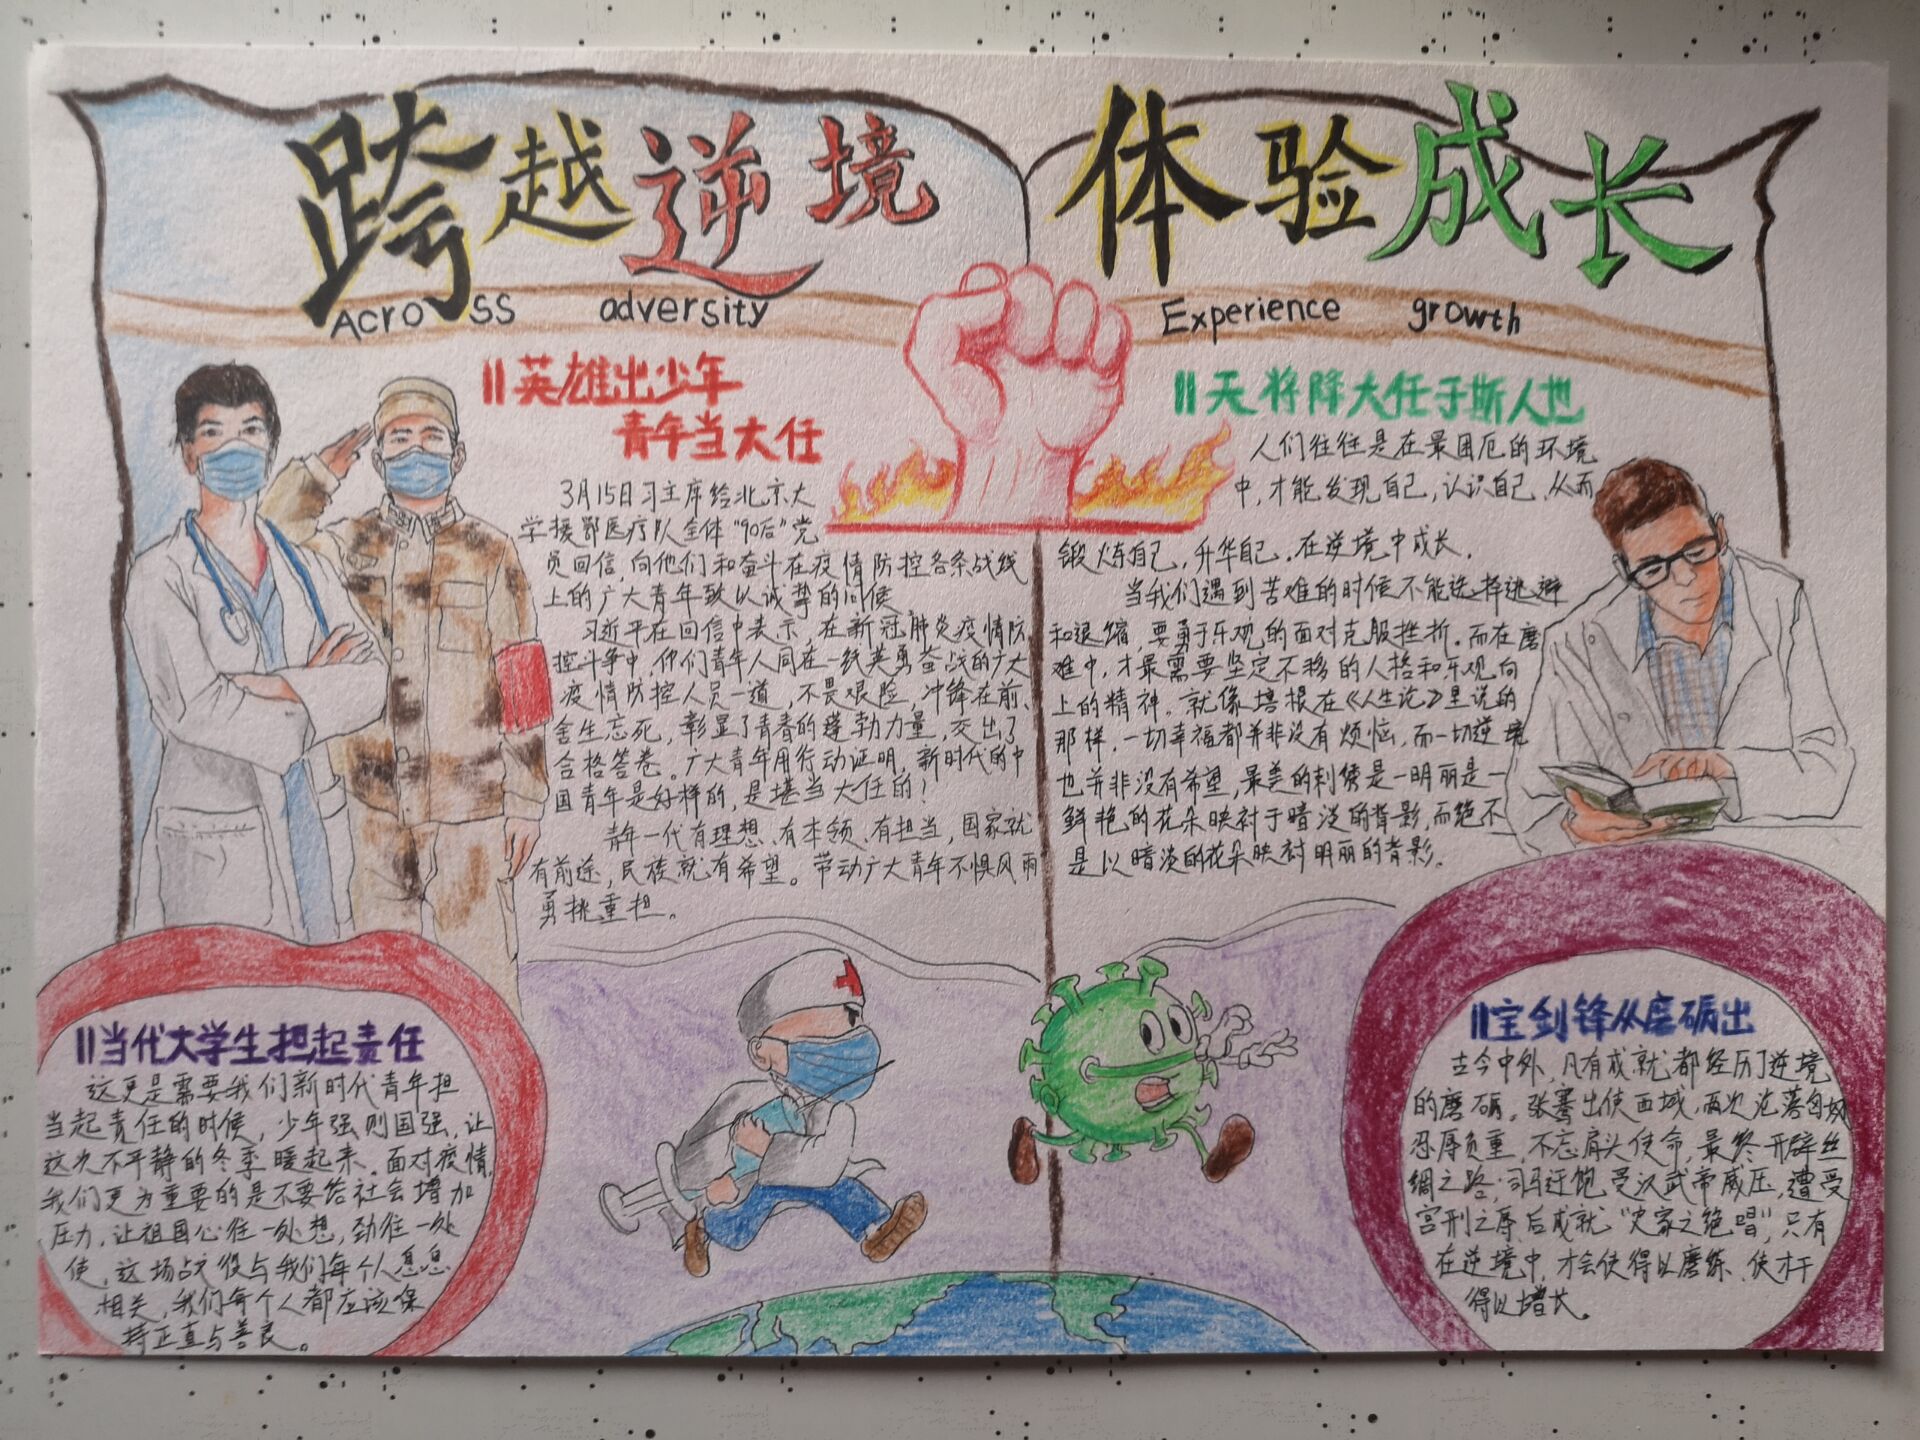 跨越逆境
体验成长
Across adversity
Experience growth
英雄出少年
青年当大任
3月15日习主席给北京大
学援鄂医疗队全体“90后”党
员回信,向他们和奋斗在疫情防控各条战线
上的广大青年致以诚挚的问候。
习近平在回信中表示,在新冠肺炎疫情防
控斗争中,你们青年人同在一线英勇奋战的广大
疫情防控人员一道,不畏艰险,冲锋在前、
舍生忘死,彰显了青春的蓬勃力量,交出了
合格答卷。广大青年用行动证明,新时代的中
国青年是好样的,是堪当大任的!
青年一代有理想、有本领、有担当,国家就
有前途,民族就有希望。带动广大青年不惧风雨
勇挑重担。
天将降大任于斯人也
人们往往是在最困厄的环境
中,才能发现自己,认识自己,从而
锻炼自己,升华自己.在逆境中成长.
当我们遇到苦难的时候不能选择逃避
和退缩,要勇于乐观的面对克服挫折.而在磨
难中,才最需要坚定不移的人格和乐观向
上的精神。就像培根在《人生论》里说的
那样,一切幸福都并非没有烦恼,而一切逆境
也并非没有希望,最美的刺绣是一明丽是一
鲜艳的花朵映衬于暗淡的背影,而绝不
是以暗淡的花朵映衬明丽的背影.
当代大学生担起责任
这更是需要我们新时代青年担
当起责任的时候,少年强则国强,让
这次不平静的冬季暖起来。面对疫情,
我们更为重要的是不要给社会增加
压力,让祖国心往一处想,劲往一处
使,这场战役与我们每个人息息
相关,我们每个人都应该保
持正直与善良。
宝剑锋从磨砺出
古今中外,凡有成就都经历了逆境
的磨砺。张骞出使西域,两次沦落匈奴
忍辱负重,不忘肩头使命,最终开辟丝
绸之路;司马迁饱受汉武帝威压,遭受
宫刑之辱后成就“史家之绝唱”,只有
在逆境中,才会使得以磨练,使才干
得以增长。